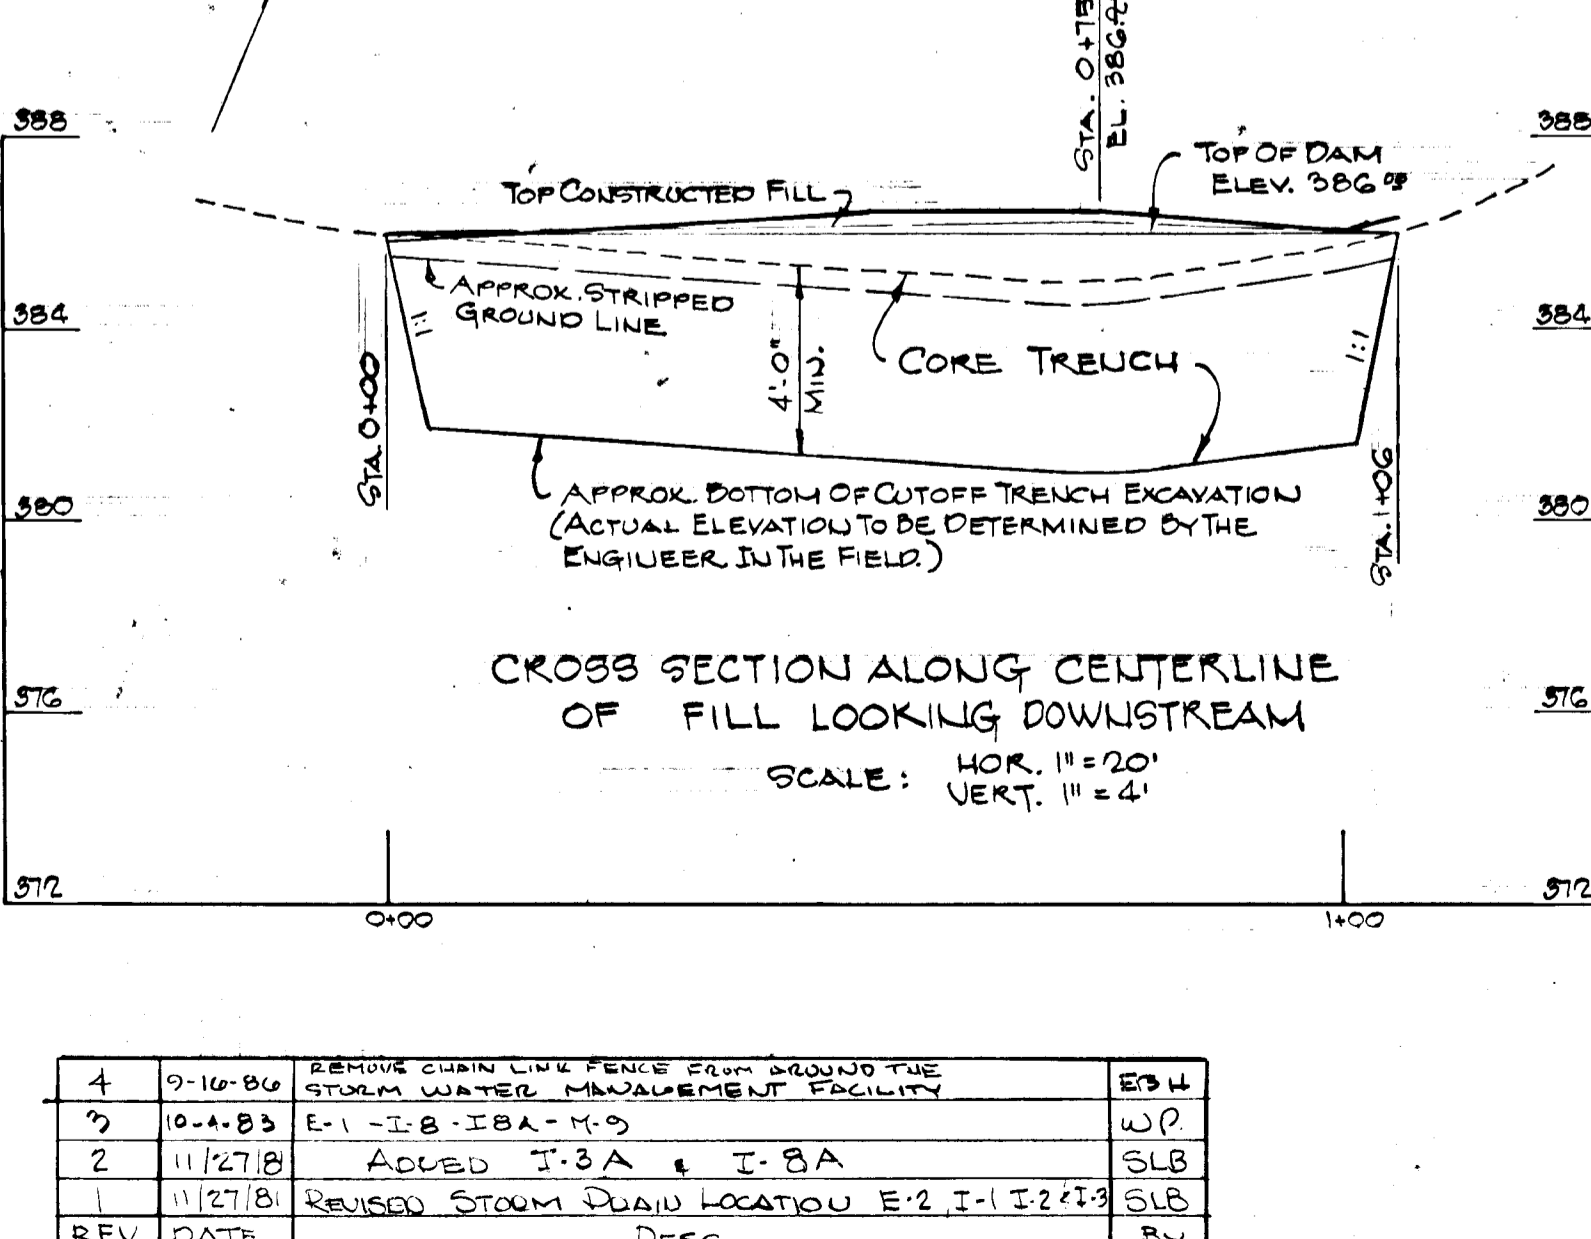 STA. 0+75
EL. 386.2
388
388
TOP OF DAM
ELEV. 386
TOP CONSTRUCTED FILL
APPROX. STRIPPED
GROUND LINE
384
384
1:1
1:1
4'-0"
MIN.
CORE TRENCH
STA. 0+00
STA. 1+06
380
380
APPROX. BOTTOM OF CUTOFF TRENCH EXCAVATION
(ACTUAL ELEVATION TO BE DETERMINED BY THE
ENGINEER IN THE FIELD.)
CROSS SECTION ALONG CENTERLINE
OF FILL LOOKING DOWNSTREAM
376
376
SCALE: HOR. 1" = 20'
VERT. 1" = 4'
372
372
0+00
1+00
4 9-16-86 REMOVE CHAIN LINK FENCE FROM AROUND THE
STORM WATER MANAGEMENT FACILITY EBH
3 10-4-83 E-1 - I-8 - I8A - M-9 W.P.
2 11/27/8 ADDED I-3A & I-8A SLB
1 11/27/81 REVISED STORM DRAIN LOCATION E-2, I-1 I-2 & I-3 SLB
REV DATE DESC BY